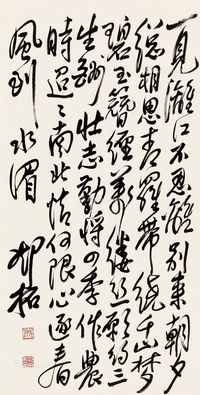 一見灕江不忍離別來朝夕
總相思青羅帶繞千山夢
碧玉簪纏萬縷絲願約三
生酬壯志勤將四季作農
時迢々南北情何限心逐春
風到水湄 邓拓